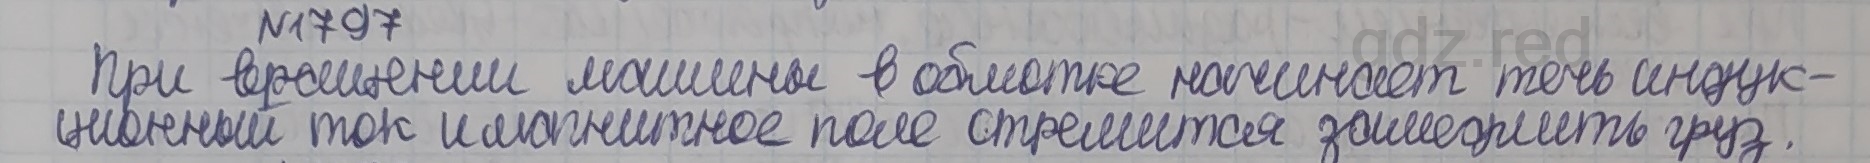 N1797
gdz.red
При вращении машины в обмотке начинает течь индук-
ционный ток и магнитное поле стремится замедлить груз.